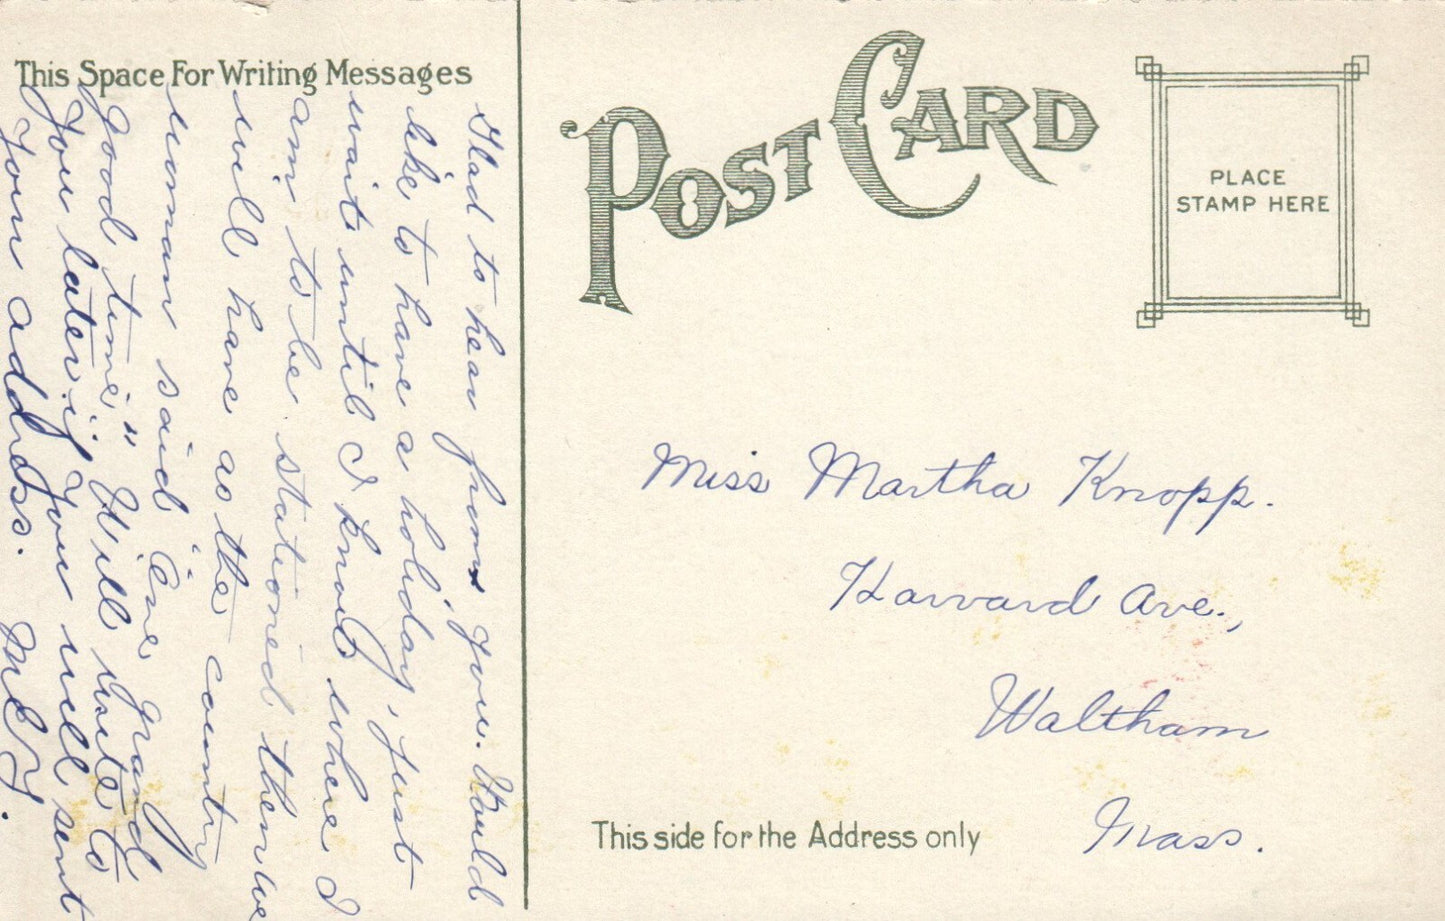 This Space For Writing Messages
Glad to hear from you. Would
like to have a holiday, just
wait until I know where I
am to be stationed then we
will have as the country
woman said "One grand
good time." Will write to
you later if you will sent
your address. M. E. Y.
POST CARD
PLACE
STAMP HERE
Miss Martha Knopp.
Harvard Ave.,
Waltham
Mass.
This side for the Address only